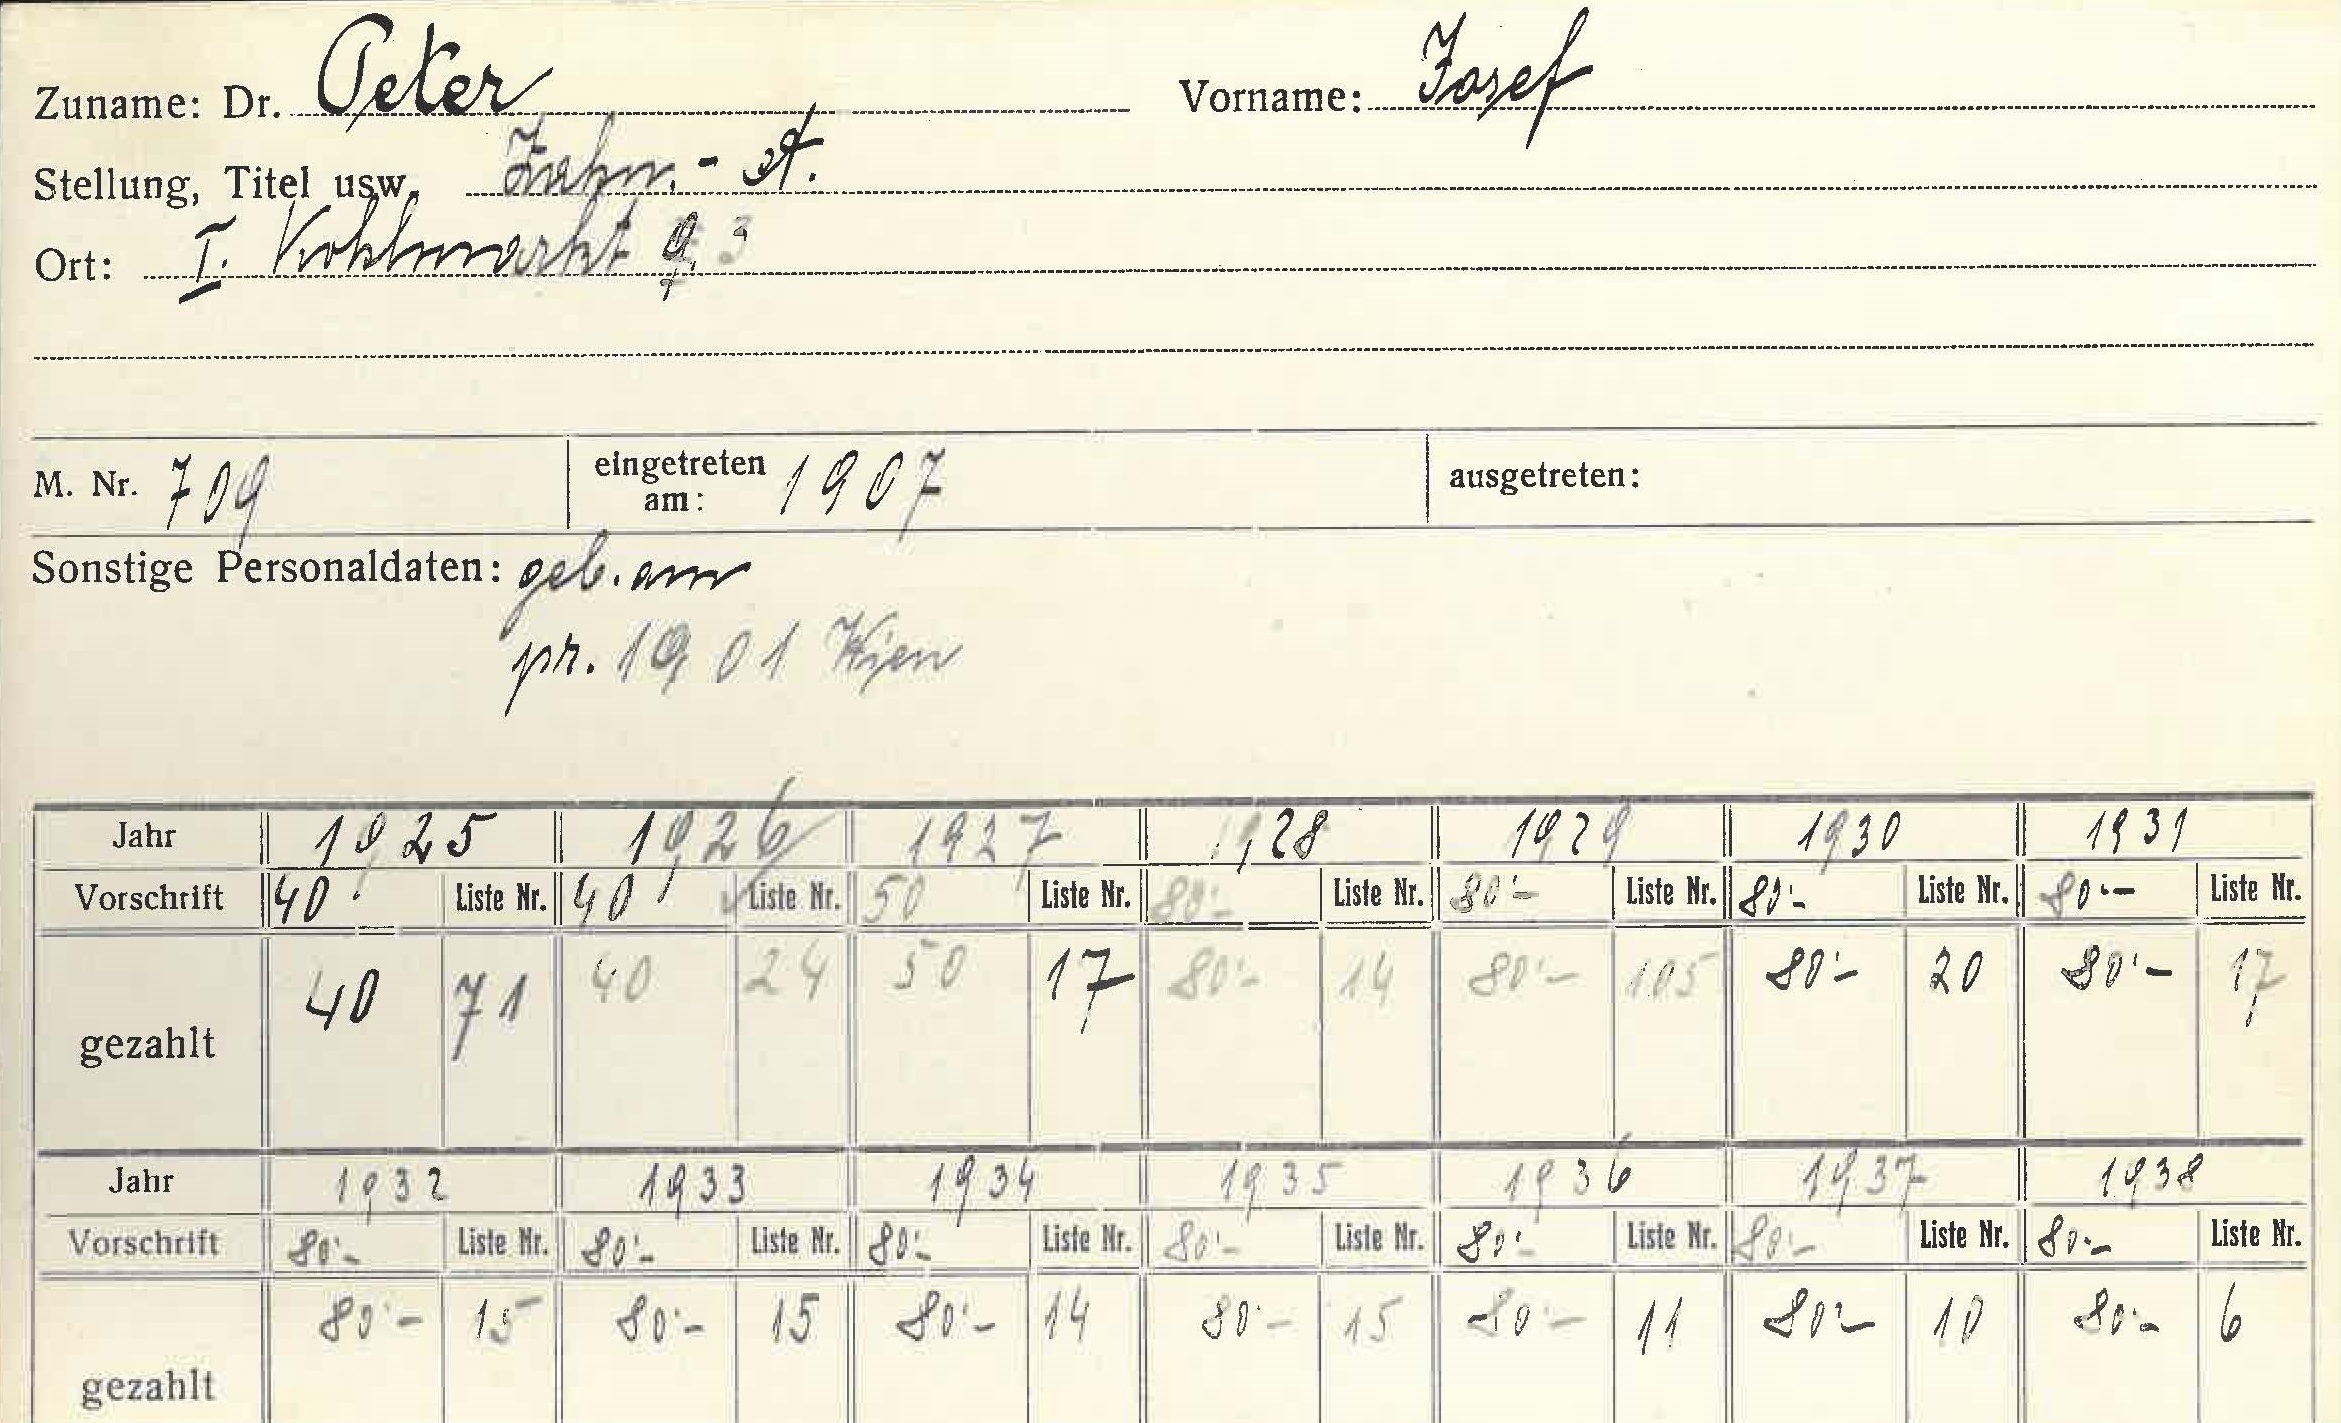 Zuname: Dr. Peter Vorname: Josef
Stellung, Titel usw. Zahn.-A.
Ort: I. Kohlmarkt 9, 3
M. Nr. 709 eingetreten am: 1907 ausgetreten:
Sonstige Personaldaten: geb. am
pr. 1901 Wien
Jahr 1925 1926 1927 1928 1929 1930 1931
Vorschrift 40.' Liste Nr. 40' Liste Nr. 50 Liste Nr. 80'- Liste Nr. 80'- Liste Nr. 80'- Liste Nr. 80'- Liste Nr.
gezahlt 40 71 40 24 50 17 80'- 14 80'- 105 80'- 20 80'- 17
Jahr 1932 1933 1934 1935 1936 1937 1938
Vorschrift 80'- Liste Nr. 80'- Liste Nr. 80'- Liste Nr. 80'- Liste Nr. 80'- Liste Nr. 80'- Liste Nr. 80'- Liste Nr.
gezahlt 80'- 15 80'- 15 80'- 14 80'- 15 80'- 11 80'- 10 80'- 6